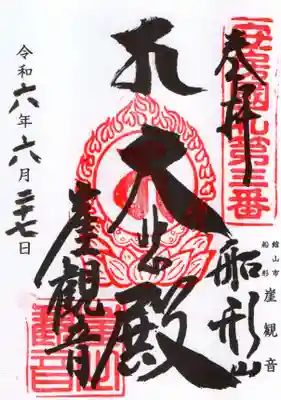 安房國札第三番
奉拝
船形山
館山市
船形
崖観音
大悲殿
崖観音
令和六年六月二十七日